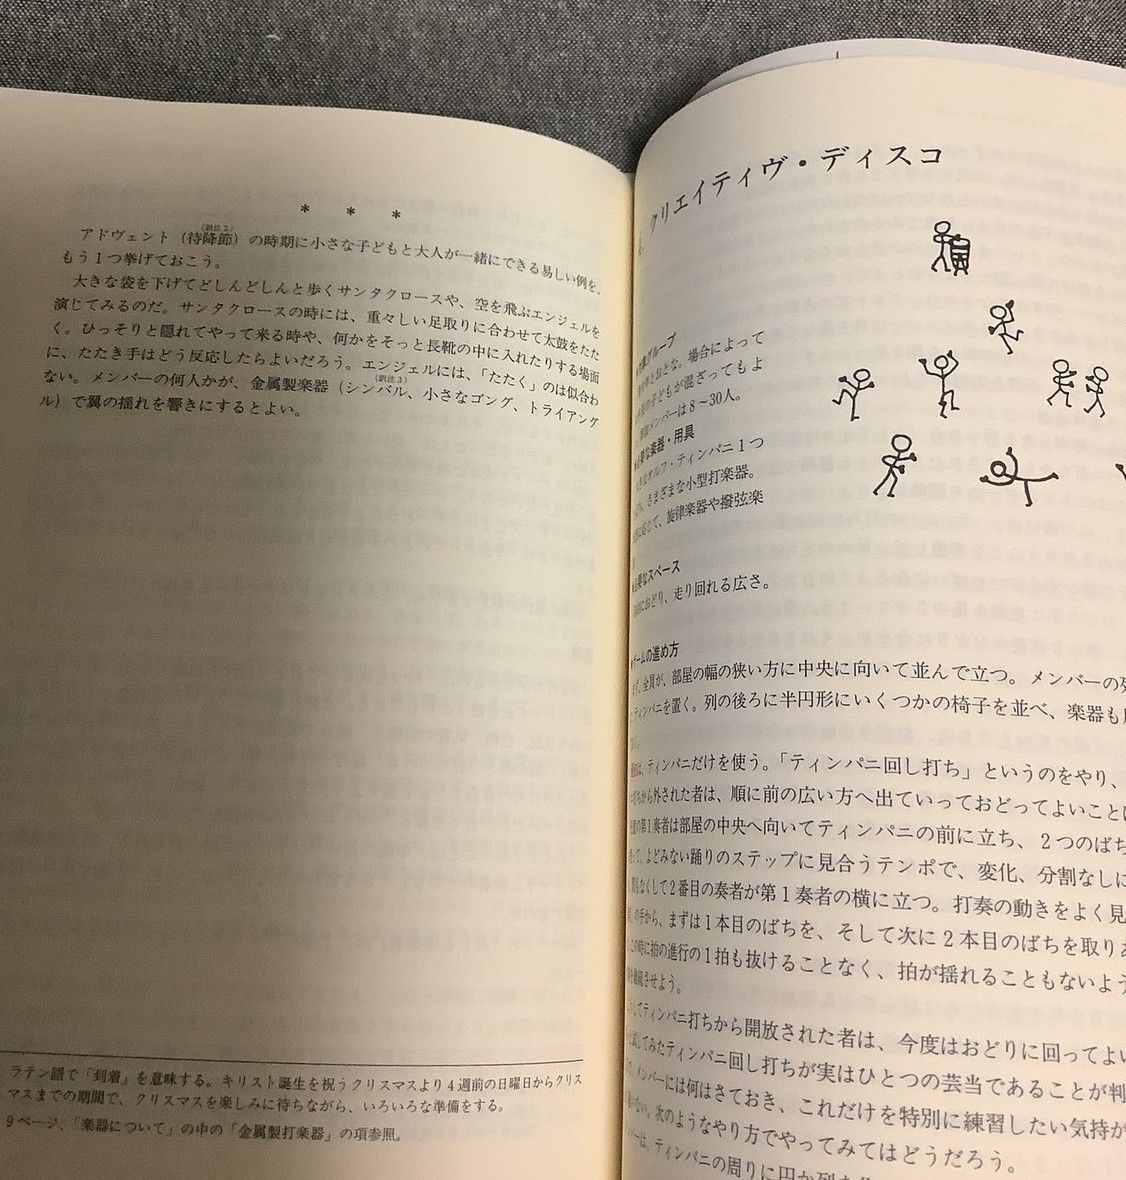 * * *
アドヴェント（待降節）の時期に小さな子どもと大人が一緒にできる易しい例を、
（訳注2）
もう1つ挙げておこう。
大きな袋を下げてどしんどしんと歩くサンタクロースや、空を飛ぶエンジェルを
演じてみるのだ。サンタクロースの時には、重々しい足取りに合わせて太鼓をたた
く。ひっそりと隠れてやって来る時や、何かをそっと長靴の中に入れたりする場面
に、たたき手はどう反応したらよいだろう。エンジェルには、「たたく」のは似合わ
ない。メンバーの何人かが、金属製楽器（シンバル、小さなゴング、トライアング
（訳注3）
ル）で翼の揺れを響きにするとよい。
ラテン語で「到着」を意味する。キリスト誕生を祝うクリスマスより4週前の日曜日からクリス
マスまでの期間で、クリスマスを楽しみに待ちながら、いろいろな準備をする。
9ページ、「楽器について」の中の「金属製打楽器」の項参照。
クリエイティヴ・ディスコ
グループ
おとな。場合によって
の子どもが混ざってもよ
メンバーは8～30人。
必要な楽器・用具
オルフ・ティンパニ1つ
さまざまな小型打楽器。
応じて、旋律楽器や撥弦楽
必要なスペース
おどり、走り回れる広さ。
ゲームの進め方
全員が、部屋の幅の狭い方に中央に向いて並んで立つ。メンバーの
ティンパニを置く。列の後ろに半円形にいくつかの椅子を並べ、楽器も
ティンパニだけを使う。「ティンパニ回し打ち」というのをやり、
から外された者は、順に前の広い方へ出ていっておどってよいこと
第1奏者は部屋の中央へ向いてティンパニの前に立ち、2つのばち
よどみない踊りのステップに見合うテンポで、変化、分割なしに
なくして2番目の奏者が第1奏者の横に立つ。打奏の動きをよく見
の手から、まずは1本目のばちを、そして次に2本目のばちを取り
時に拍の進行の1拍も抜けることなく、拍が揺れることもないよう
継続させよう。
ティンパニ打ちから開放された者は、今度はおどりに回ってよい
試してみたティンパニ回し打ちが実はひとつの芸当であることが判
メンバーには何はさておき、これだけを特別に練習したい気持が
次のようなやり方でやってみてはどうだろう。
ティンパニの周りに円か列を